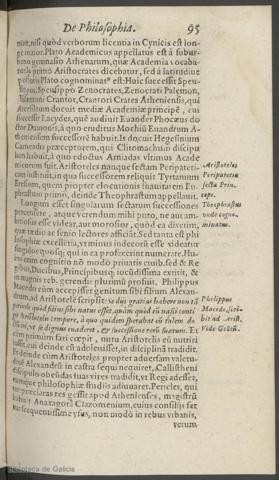 De Philosophia. 95
mint, nisi quòd verborum licentia in Cynicis est lon-
ge maior. Plato Academicus appellatus est à subur-
bano gymnasio Athenarum, quæ Academia vocaba-
tur, à primò Aristocrates dicebatur, sed à latitudine
pectoris Plato cognominatꝰ est: Huic successit Speu-
sippo, Speusippo Zenocrates, Zenocrati Palemon,
Palemoni Crantor, Crantori Crates Atheniensis, qui
Arcesilum docuit mediæ Academiæ principē, cui
successit Lacydes, quē audiuit Euander Phocæus do-
ctor Damonis, à quo eruditus Mochiū Euandrum A-
theniensem successorē habuit. Is docuit Hegesinum
Carneadis præceptorem, qui Clitomachum discipu-
lum habuit, à quo edoctus Amiadas vltimus Acade-
micorum fuit. Aristoteles nanque sectam Peripateti-
cam instituit, in qua successorem reliquit Tyrtamum
Eresium, quem propter elocutionis suauitatem Eu-
phrastum primò, deinde Theophrastum appellauit.
Longum esset singularum sectarum successiones
percensere, atque verendum mihi puto, ne aut am-
bitiosus esse videar, aut morosior, quàm ea dixerim,
quæ tædio as senio lectores afficiāt. Sed tanta est phi-
losophiæ excellētia, vt minus indecorū esse videatur
singulos quosq; qui in ea profecerint numerare. Hu-
ius enim cognitio nō modò priuatis ciuib. sed & Re-
gibus, Ducibus, Principibusq; iucūdissima extitit, &
in magnis reb. gerendis plurimū profuit. Philippus
Macedo cùm accepisset genitum sibi filium Alexan-
drum, ad Aristotelē scripsit: se dijs gratias habere non tā
proinde quid filius sibi natus esset, quàm quòd eū nasci conti-
git Aristotelis tempore, à quo quidem sperabat vt talem do-
ctū iri, vt se dignus euaderet, & successione rerū suarum. Et
cùm primum fari cœpit, nutu Aristotelis eū nutriri
iussit, cui deinde cū adoleuisset, in disciplinā tradidit.
Et deinde cùm Aristoteles propter aduersam valetu-
dinē Alexandrū in castra sequi nequiret, Callistheni
discipulo obeūdas suas vires tradidit, vt Regi adesset,
eumque philosophiæ studijs adiuuaret. Pericles, qui
tot præclaras res gessit apud Athenienses, magistrū
habuit Anaxagorā Clazomenium, cuius consilijs sæ-
pe frequentissimè vsus, non modò in rebus vrbanis,
verum
Aristoteles
Peripateticæ
sectæ Prin-
ceps.
Theophrastus
vnde cogno-
minatus.
Philippus
Macedo, scri-
bit ad Arist.
Vide Gelliū.
Biblioteca de Galicia